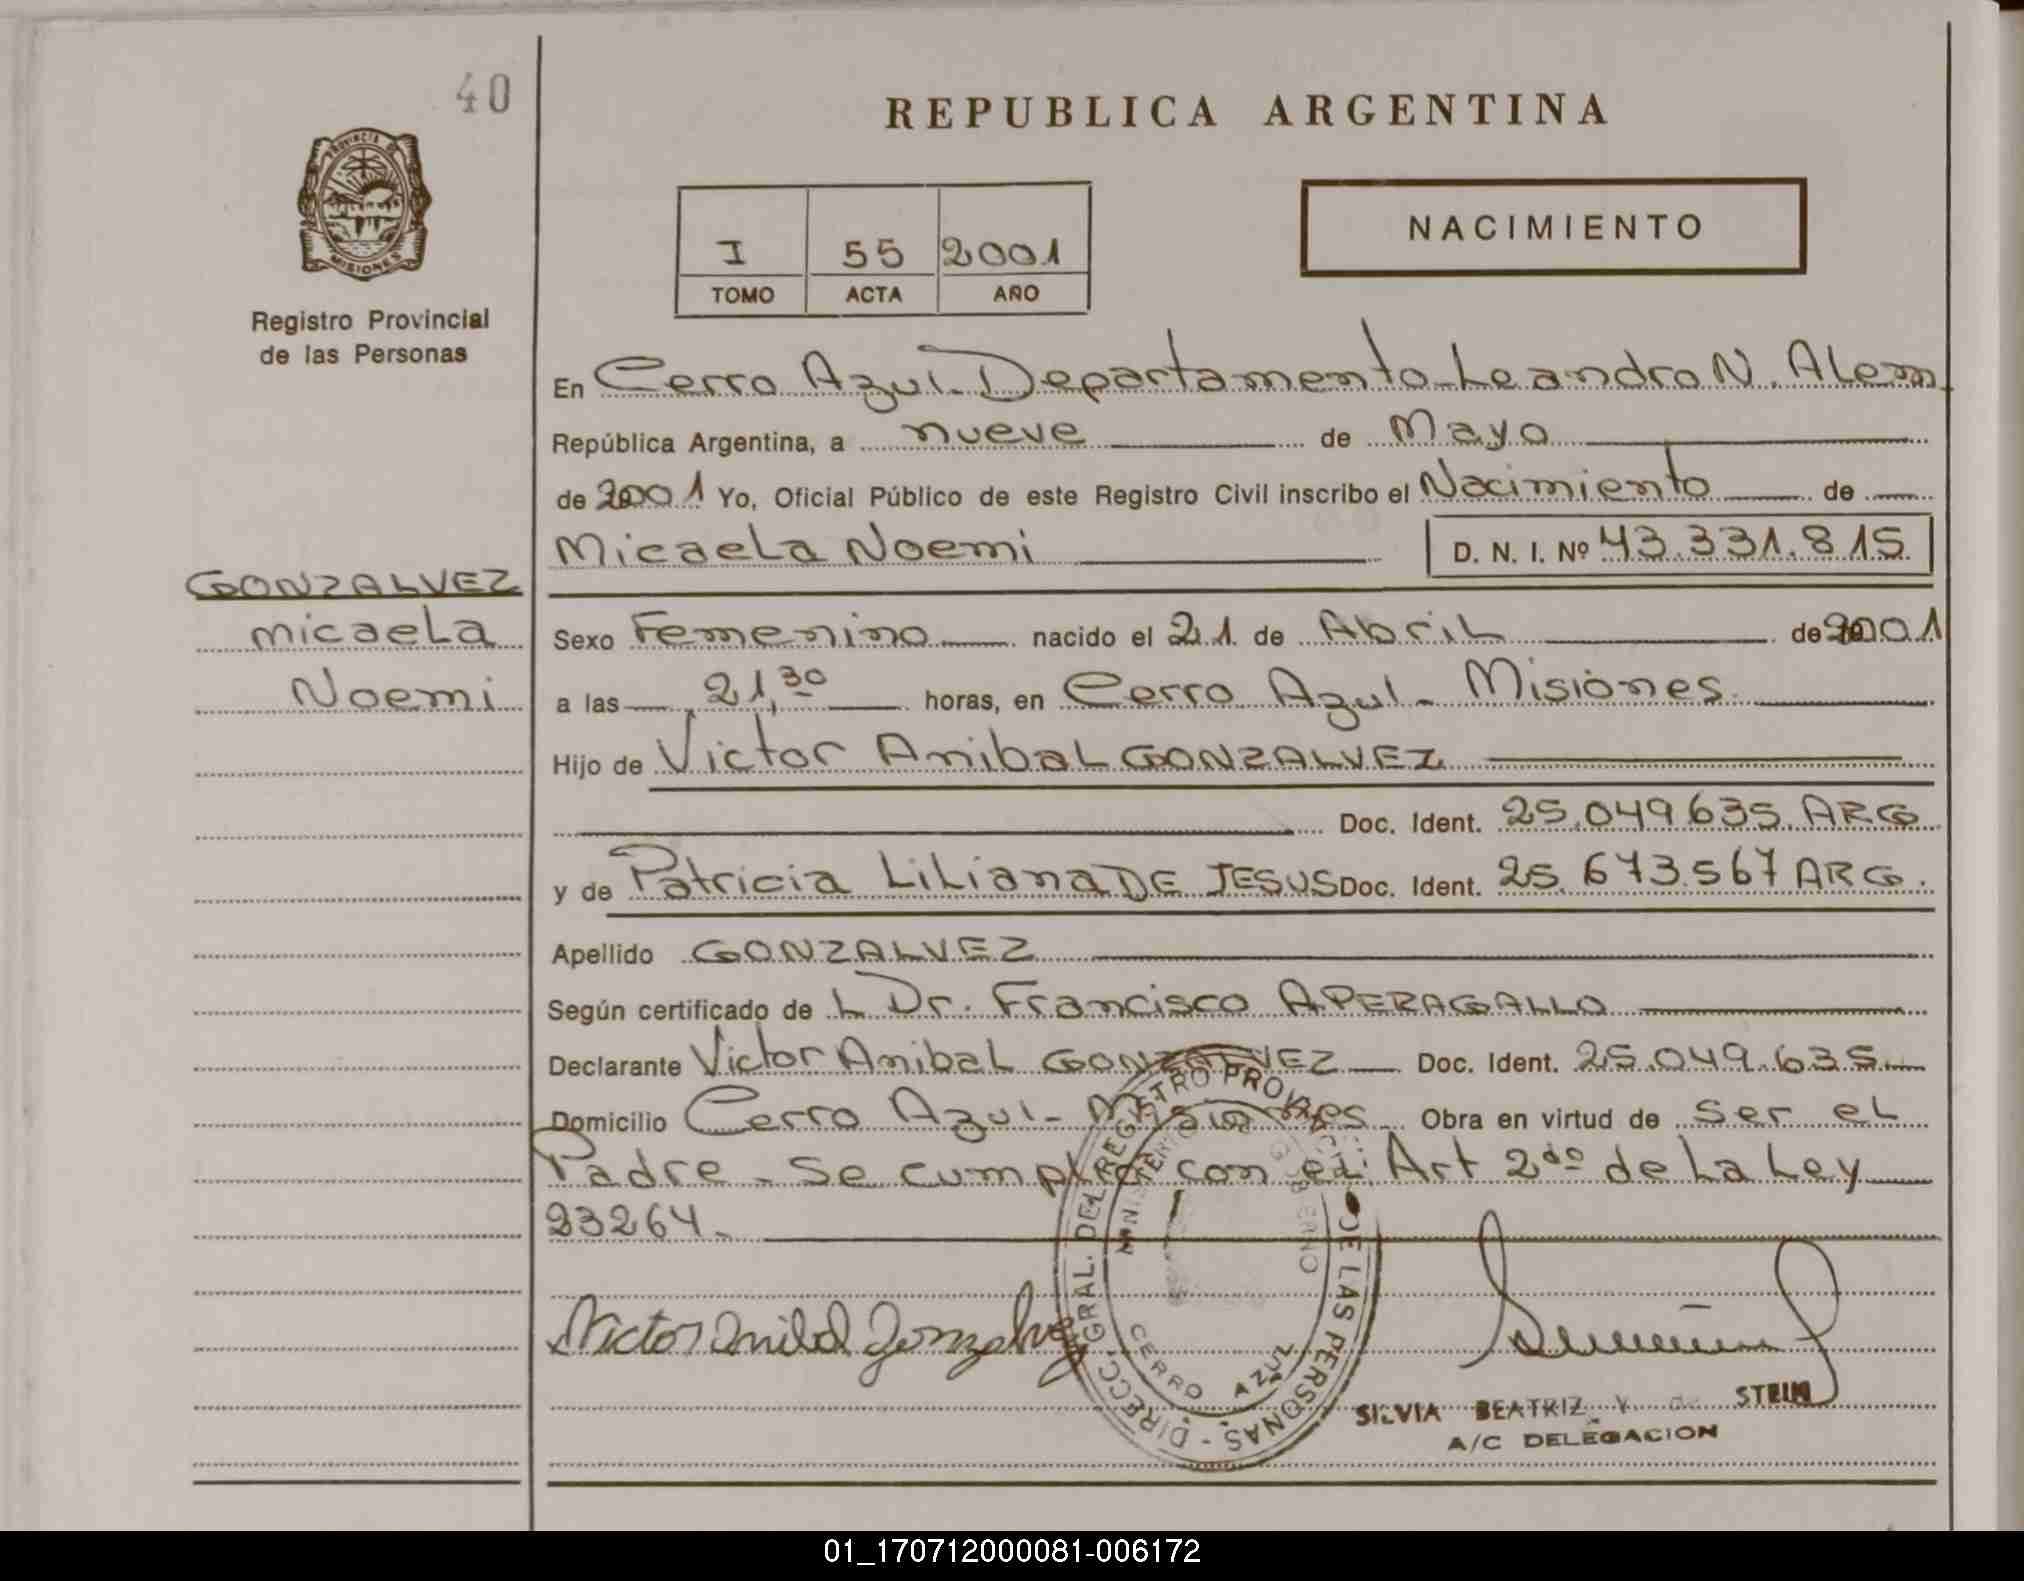 40
REPUBLICA ARGENTINA
PROVINCIA DE MISIONES
Registro Provincial
de las Personas
NACIMIENTO
I 55 2001
TOMO ACTA AÑO
En Cerro Azul - Departamento Leandro N. Alem
República Argentina, a nueve de Mayo
de 2001 Yo, Oficial Público de este Registro Civil inscribo el Nacimiento de
Micaela Noemi D. N. I. Nº 43.331.815
GONZALVEZ
Micaela
Noemi
Sexo Femenino nacido el 21 de Abril de 2001
a las 21,30 horas, en Cerro Azul - Misiones
Hijo de Victor Anibal GONZALVEZ
Doc. Ident. 25.049.635 ARG
y de Patricia Liliana DE JESUS Doc. Ident. 25.673.567 ARG.
Apellido GONZALVEZ
Según certificado de L Dr. Francisco A PERAGALLO
Declarante Victor Anibal GONZALVEZ Doc. Ident. 25.049.635
Domicilio Cerro Azul - Misiones Obra en virtud de ser el
Padre - Se cumplio con el Art 2do de La Ley
23264.
Victor Anibal Gonzalvez
DIRECC. GRAL. DEL REGISTRO PROVINCIAL DE LAS PERSONAS -
MINISTERIO GOBIERNO
CERRO AZUL
SILVIA BEATRIZ Y de STEIN
A/C DELEGACION
01_170712000081-006172